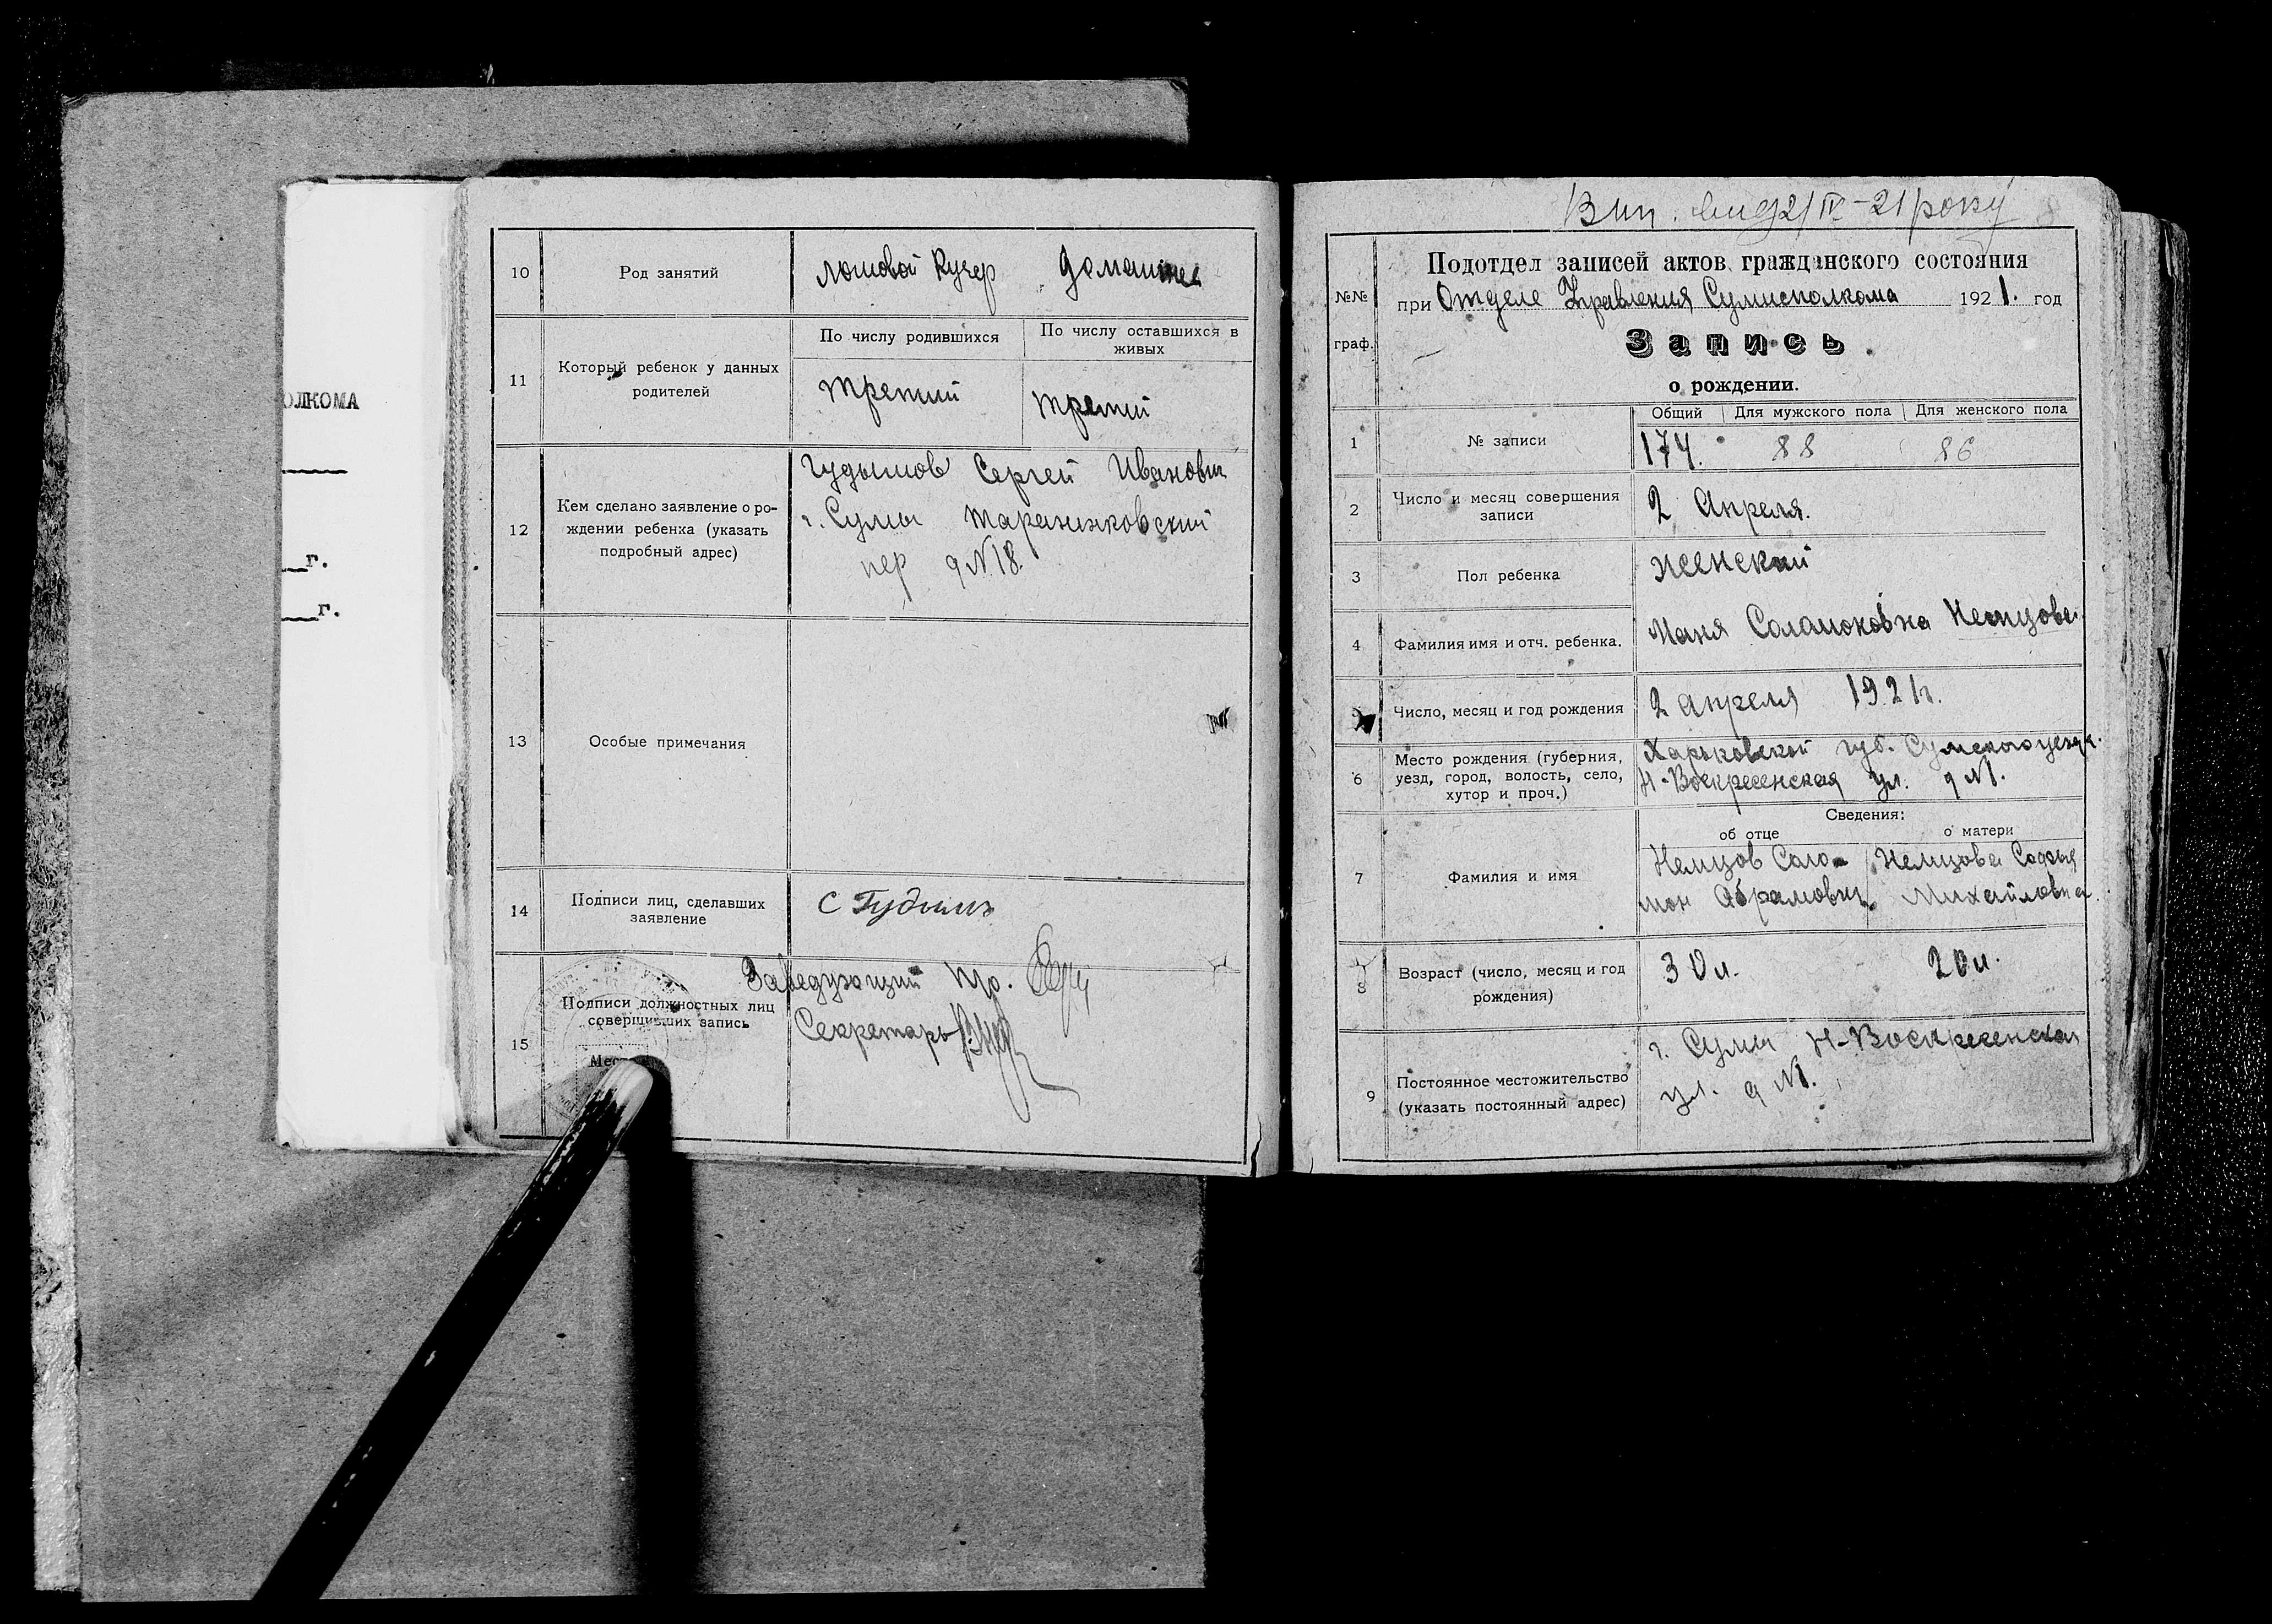 ОЛКОМА
г.
г.
10 Род занятий ломовой кучер домашнее
11 Который ребенок у данных родителей
По числу родившихся По числу оставшихся в живых
третий третий
12 Кем сделано заявление о ро-
ждении ребенка (указать
подробный адрес)
Гудымов Сергей Иванович
г. Сумы
пер д N18.
13 Особые примечания
14 Подписи лиц, сделавших
заявление
С Гудымъ
15 Подписи должностных лиц
совершивших запись
Заведующий
Секретарь
Вип. 2/IV-21 року
№№ граф.
Подотдел записей актов гражданского состояния
при Отделе Управления Сумисполкома 1921. год
Запись
о рождении.
Общий Для мужского пола Для женского пола
1 № записи 174. 88 86
2 Число и месяц совершения
записи
2 Апреля.
3 Пол ребенка женский
4 Фамилия имя и отч. ребенка. Маня Саламоновна Немцова
Число, месяц и год рождения 2 апреля 1921г.
6 Место рождения (губерния,
уезд, город, волость, село,
хутор и проч.)
Харьковской губ. Сумского уезда.
Н-Воскресенская ул. д N1.
Сведения:
об отце о матери
7 Фамилия и имя
Немцов Соло- Немцова Софья
мон Абрамович Михайловна
8 Возраст (число, месяц и год
рождения)
30 л. 20 л.
9 Постоянное местожительство
(указать постоянный адрес)
г. Сумы Н-Воскресенская
ул. д N1.